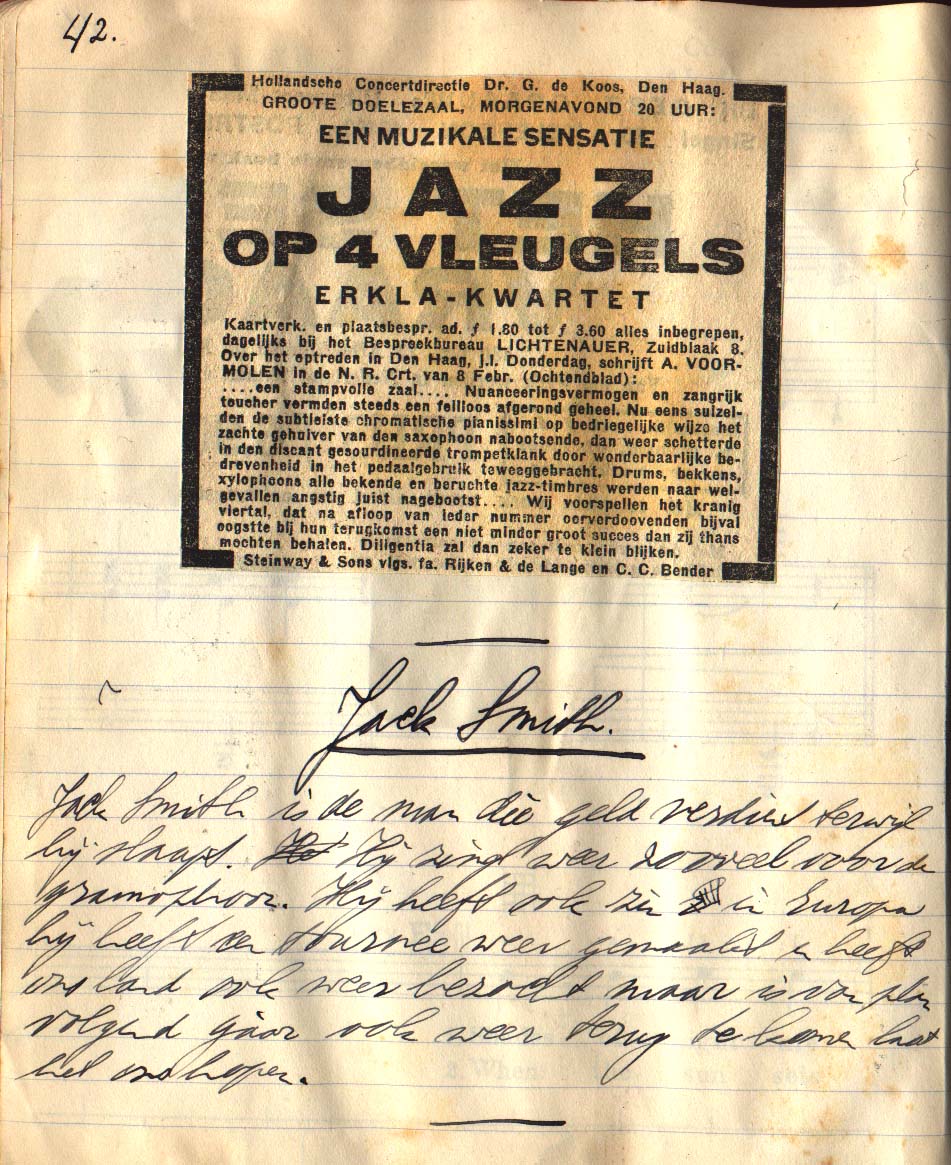 42.
Hollandsche Concertdirectie Dr. G. de Koos, Den Haag.
GROOTE DOELEZAAL, MORGENAVOND 20 UUR:
EEN MUZIKALE SENSATIE
JAZZ
OP 4 VLEUGELS
ERKLA-KWARTET
Kaartverk. en plaatsbespr. ad. ƒ 1.80 tot ƒ 3.60 alles inbegrepen,
dagelijks bij het Bespreekbureau LICHTENAUER, Zuidblaak 8.
Over het optreden in Den Haag, j.l. Donderdag, schrijft A. VOOR-
MOLEN in de N. R. Crt. van 8 Febr. (Ochtendblad):
....een stampvolle zaal.... Nuanceeringsvermogen en zangrijk
toucher vormden steeds een feilloos afgerond geheel. Nu eens suizel-
den de subtielste chromatische pianissimi op bedriegelijke wijze het
zachte gehuiver van den saxophoon nabootsende, dan weer schetterde
in den discant gesourdineerde trompetklank door wonderbaarlijke be-
drevenheid in het pedaalgebruik teweeggebracht. Drums, bekkens,
xylophoons alle bekende en beruchte jazz-timbres werden naar wel-
gevallen angstig juist nagebootst.... Wij voorspellen het kranig
viertal, dat na afloop van ieder nummer oorverdoovenden bijval
oogstte bij hun terugkomst een niet minder groot succes dan zij thans
mochten behalen. Diligentia zal dan zeker te klein blijken.
Steinway & Sons vlgs. fa. Rijken & de Lange en C. C. Bender
Jack Smith.
Jack Smith is de man die geld verdient terwijl
hij slaapt. Hij zingt weer zooveel voor de
gramophoon. Hij heeft ook in Europa
hij heeft een tournee weer gemaakt en heeft
ons land ook weer bezocht maar is van plan
volgend jaar ook weer terug te komen laat
het ons hopen.